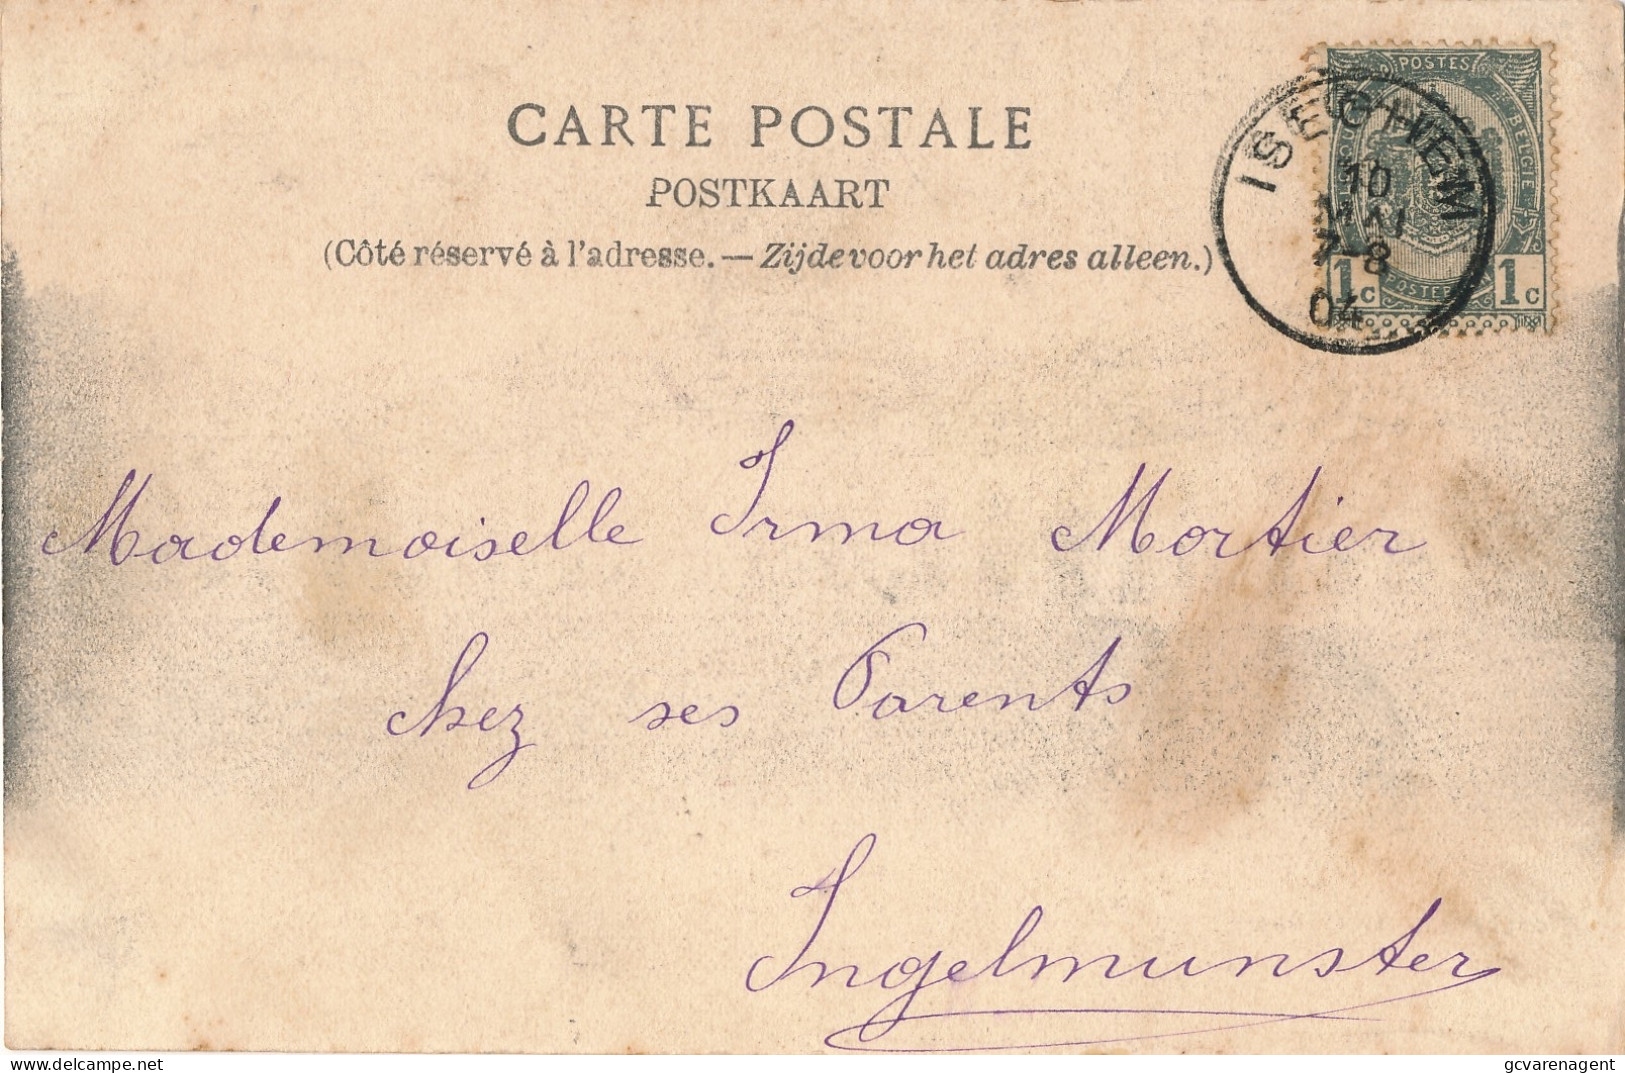 CARTE POSTALE
POSTKAART
(Côté réservé à l'adresse. — Zijde voor het adres alleen.)
POSTES
BELGIE
ISEGHEM
10
MAI
7-8
04
1c
1c
Mademoiselle Irma Mortier
chez ses Parents
Ingelmunster
delcampe.net
gcvarenagent